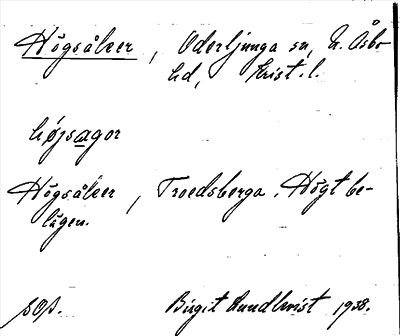 Högsåker, Oderljunga sn, N. Åsbo
hd, Krist. l.
höjsagor
Högsåker, Troedsberga. Högt be-
lägen.
sOs. Birgit Lundkvist 1938.